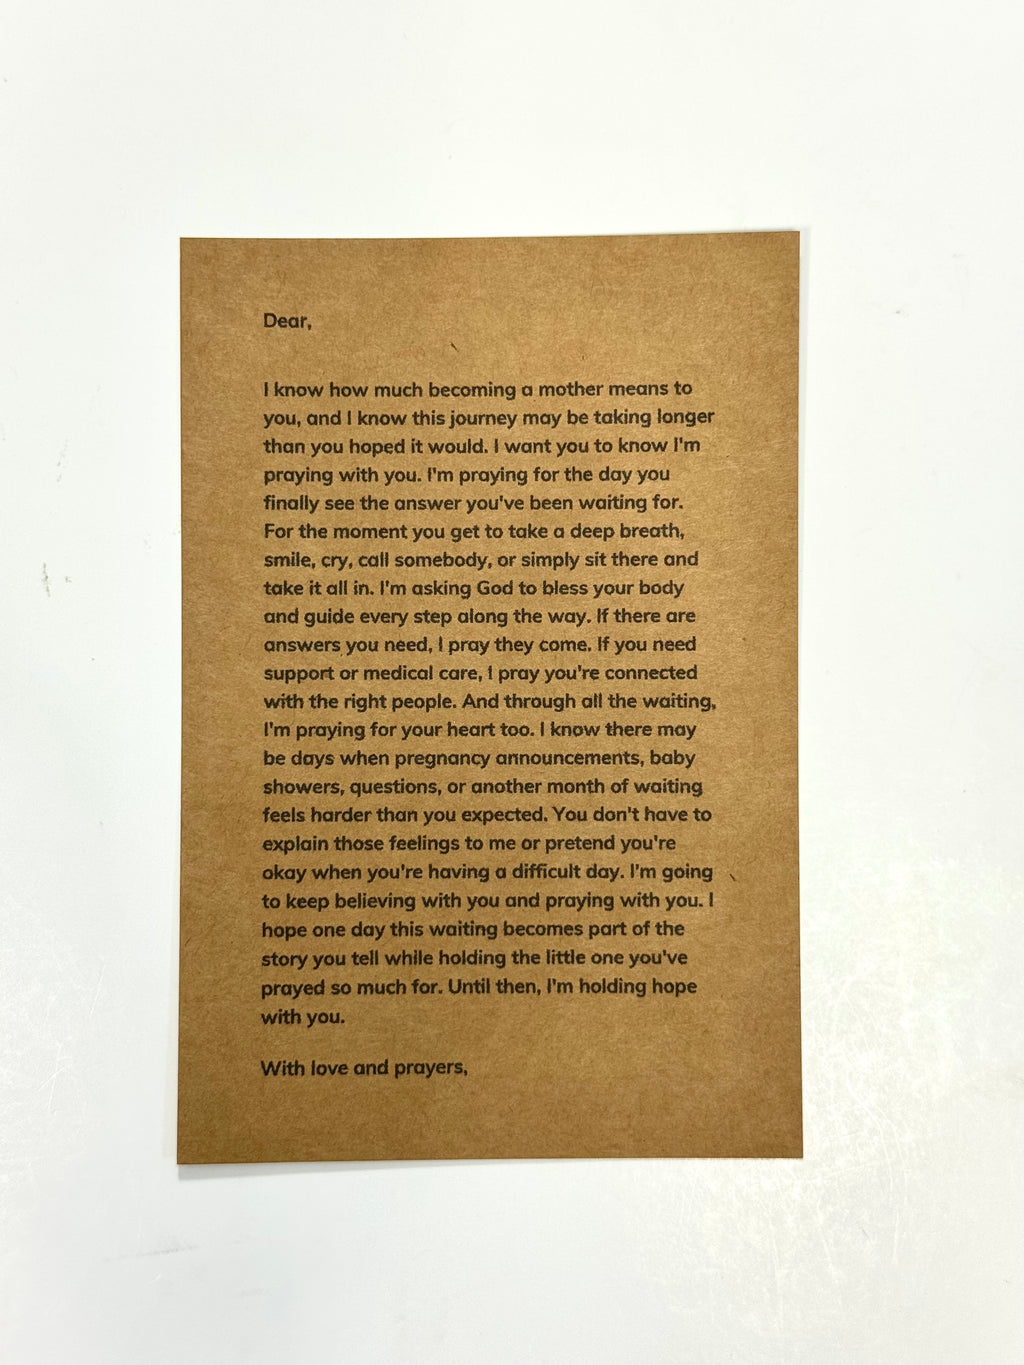 Dear,
I know how much becoming a mother means to
you, and I know this journey may be taking longer
than you hoped it would. I want you to know I'm
praying with you. I'm praying for the day you
finally see the answer you've been waiting for.
For the moment you get to take a deep breath,
smile, cry, call somebody, or simply sit there and
take it all in. I'm asking God to bless your body
and guide every step along the way. If there are
answers you need, I pray they come. If you need
support or medical care, I pray you're connected
with the right people. And through all the waiting,
I'm praying for your heart too. I know there may
be days when pregnancy announcements, baby
showers, questions, or another month of waiting
feels harder than you expected. You don't have to
explain those feelings to me or pretend you're
okay when you're having a difficult day. I'm going
to keep believing with you and praying with you. I
hope one day this waiting becomes part of the
story you tell while holding the little one you've
prayed so much for. Until then, I'm holding hope
with you.
With love and prayers,